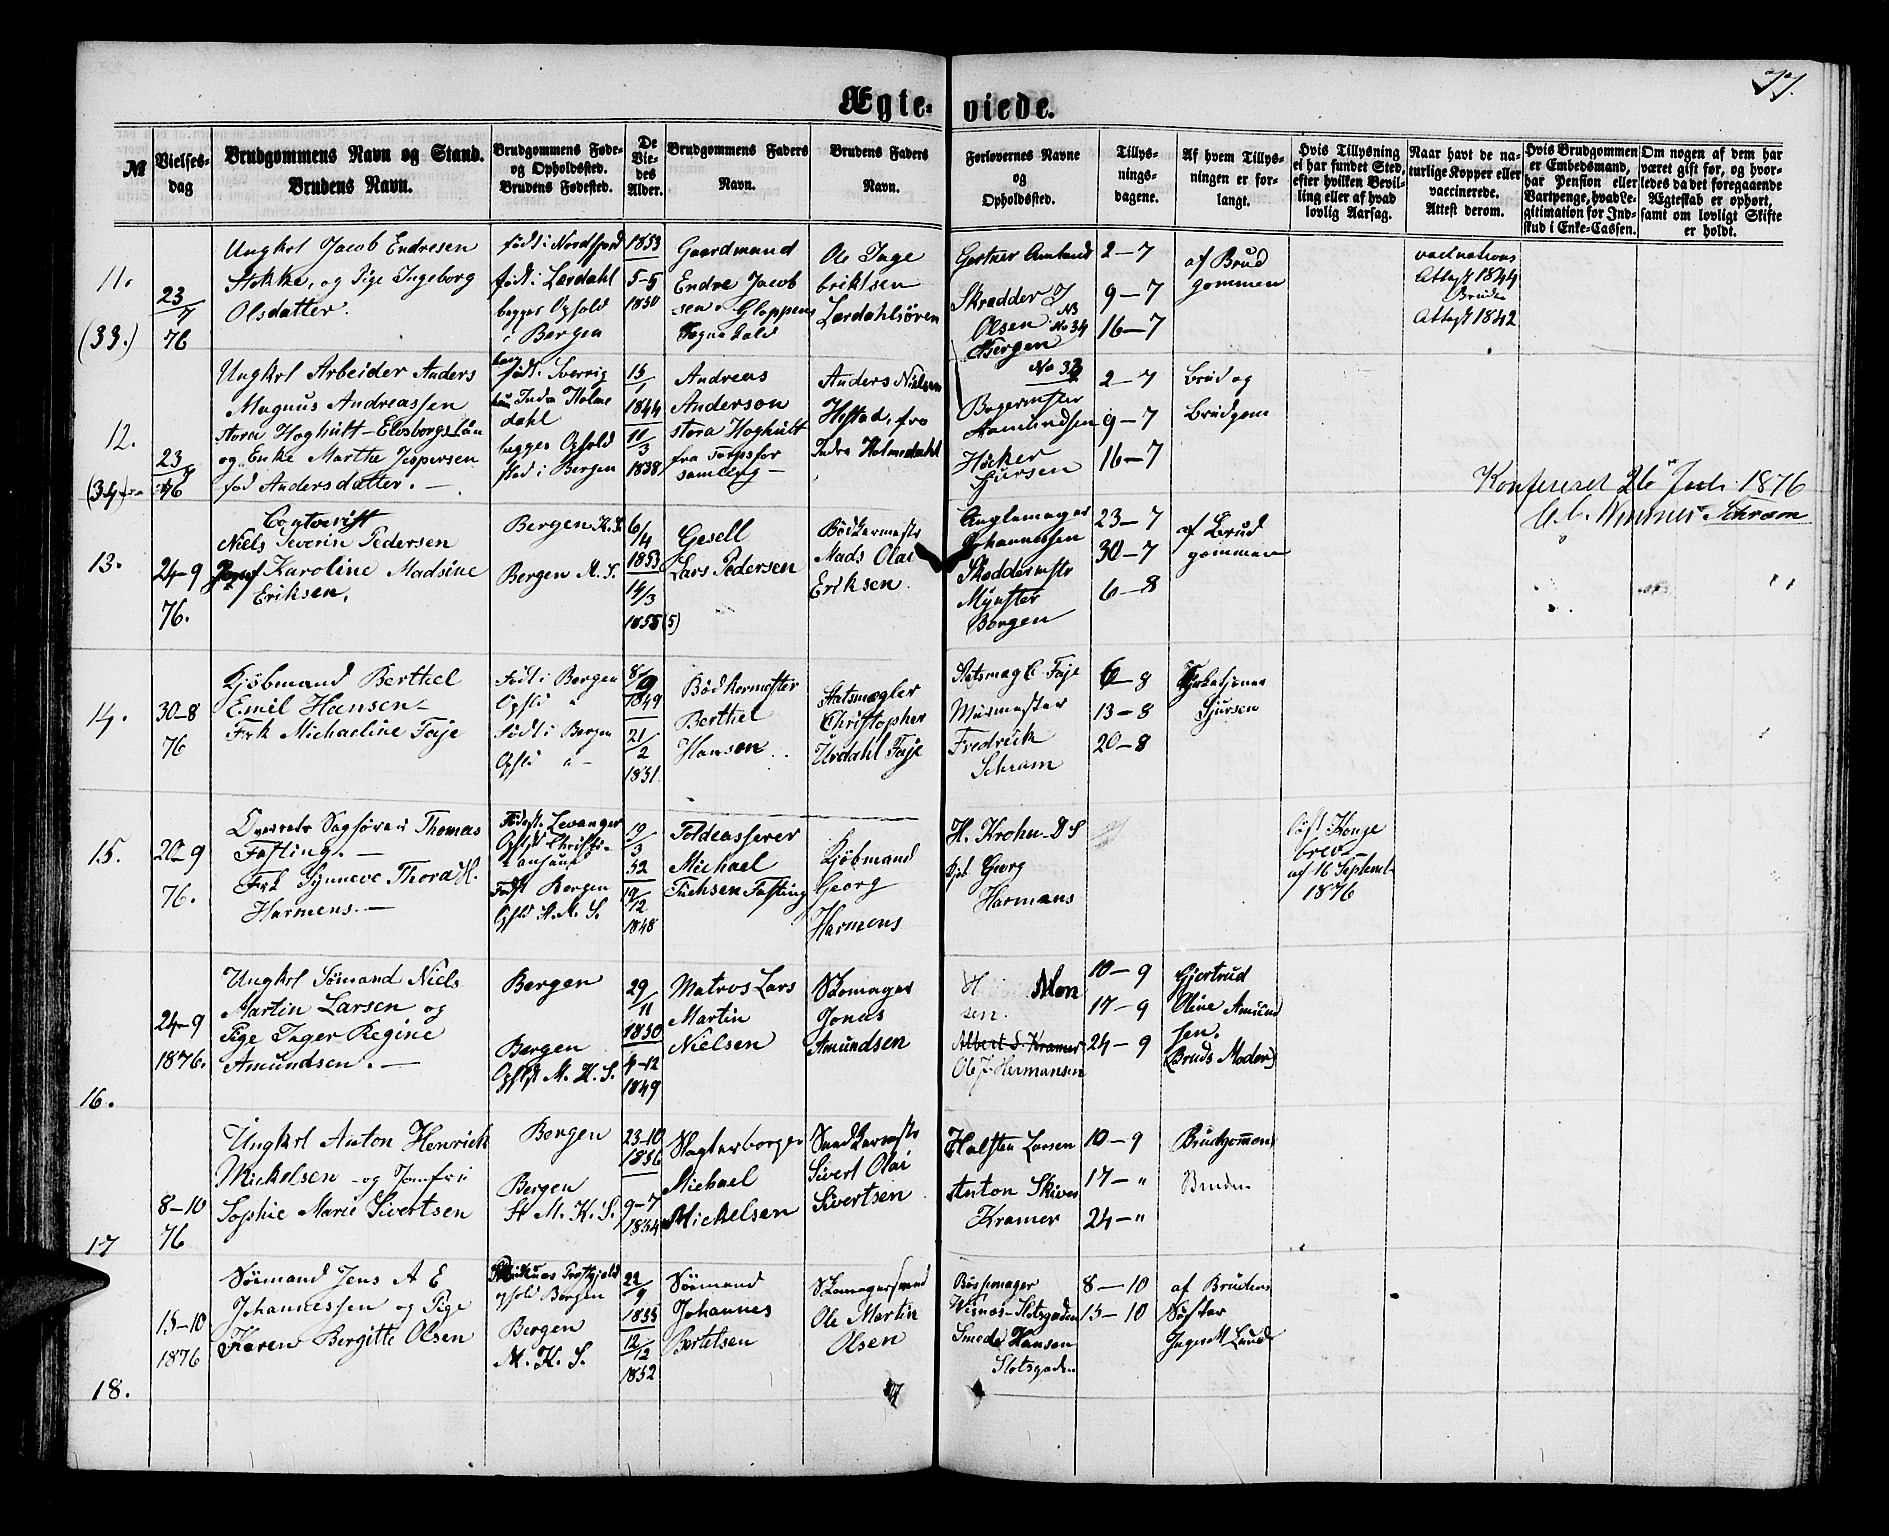 77.
Ægte-viede.
№
Vielses-
dag
Brudgommens Navn og Stand.
Brudens Navn.
Brudgommens Føde-
og Opholdssted.
Brudens Fødested.
De
Vie-
des
Alder.
Brudgommens Faders
Navn.
Brudens Faders
Navn.
Forlovernes Navne
og
Opholdssted.
Tillys-
nings-
dagene.
Af hvem Tillys-
ningen er for-
langt.
Hvis Tillysning
ei har fundet Sted,
efter hvilken Bevil-
ling eller af hvad
lovlig Aarsag.
Naar havt de na-
turlige Kopper eller
vaccinerede.
Attest derom.
Hvis Brudgommen
er Embedsmand,
har Pension eller
Vartpenge, hvad Le-
gitimation for Ind-
skud i Enke-Cassen.
Om nogen af dem har
været gift før, og hvor-
ledes da det foregaaende
Ægteskab er ophørt,
samt om lovligt Skifte
er holdt.
11.
(33.)
23/7
76
Ungkrl Jacob Endresen
Stokke, og Pige Ingeborg
Olsdatter.
født i Nordfjord
født i Lærdahl
begges Ophold
i Bergen
1853
5-5
1850
Gaardmand
Endre Jacob
sen Gloppens
Ole Inge
briktsen
Lærdahlsøren
Gartner Amland
Skrædder J
Olsen No 34
Bergen
2-7
9-7
16-7
af Brud
gommen
vaccinations
Attest 1844
Bruden
Attest 1842
12.
23/7
76
Ungkrl Arbeider Anders
Magnus Andreassen
stora Höghult Elfsborgs Län
og Enke Marthe Jespersen
fød Andersdatter.
født Sverrig
hun Indre Holme
dahl
begges Ophold
sted i Bergen
15/1
1844
11/3
1838
Andreas
Anderson
stora Höghult
fra Torpsfor
samling
Anders Nielsen
Hestad, fra
Indre Holmedahl
No 33
Bagermester
Høcker
Sjursen
2-7
9-7
16-7
Brud og
Brudgom
Konfereret 26 Juli 1876
Schram
13.
24-9
76.
Contorist
Niels Severin Pedersen
Karoline Madsine
Eriksen.
Bergen K.S.
Bergen M.S.
6/4
1853
14/3
1855 (5)
Gesell
Lars Pedersen
Bødkermestr
Mads Olai
Eriksen
Johannessen
Skreddermstr
Mynster
Bergen
23-7
30-7
6-8
af Brud
gommen
14.
30-8
76
Kjøbmand Berthel
Emil Hansen
Frk Michaeline Faje
Født i Bergen
Ophld "
Født i Bergen
Ophld "
8/9
1849
21/2
1851.
Bødkermester
Berthel
Hanson
Statsmægler
Christopher
Urdahl Faje
Statsmægl Faje
Murmester
Fredrick
Schram
6-8
13-8
20-8
Kirketjener
Sjursen
15.
20-9
76.
Overrets Sagfører Thomas
Fasting.
Frk Synneve Thora K.
Harmens.
Fødest. Levanger
Ophld Christi-
ansund
Født Bergen
Ophld St. M. S.
19/3
52
19/12
1848
Toldcasserer
Michael
Fuchsen Fasting
Kjøbmand
Georg
Harmens
H. Krohn D S
Kjøb Georg
Harmens
Konge
brev
af 16 Septembr
1876
16.
24-9
1876.
Ungkrl Sømand Niels
Martin Larsen og
Pige Inger Regine
Amundsen.
Bergen
Bergen
Ophst M. K. S.
29/11
1850
4-12
1849
Matros Lars
Martin
Nielsen
Skomager
Jonas
Amundsen
H Mon
sen.
Albert S. Kramer
Ole J Hermansen
10-9
17-9
24-9
Gjertrud
Oline Amund
sen.
(Bruds Moder)
17
8-10
76
Ungkrl Anton Henrich
Mickelsen og Jomfru
Sophie Marie Sivertsen
Bergen
Bergen
St M. K. S.
23-10
1856
9-7
1854
Slagterborger
Michael
Mickelsen
Sivert Olai
Sivertsen
Halsten Larsen
Anton Skiver
Kramer
10-9
17-"
24-"
Brudgommen
Bruden
18.
15-10
1876
Sømand Jens A E
Johannessen og Pige
Karen Bergitte Olsen
ophold Bergen
Bergen
M. K. S.
22/9
1855
12/12
1852
Sømand
Johannes
Bertelsen
Skomagersvend
Ole Martin
Olsen
Bøssemager
Wisnes-Slotsgaden
Smed Hansen
Slotsgaden
8-10
15-10
af Brudens
Søster
Lund